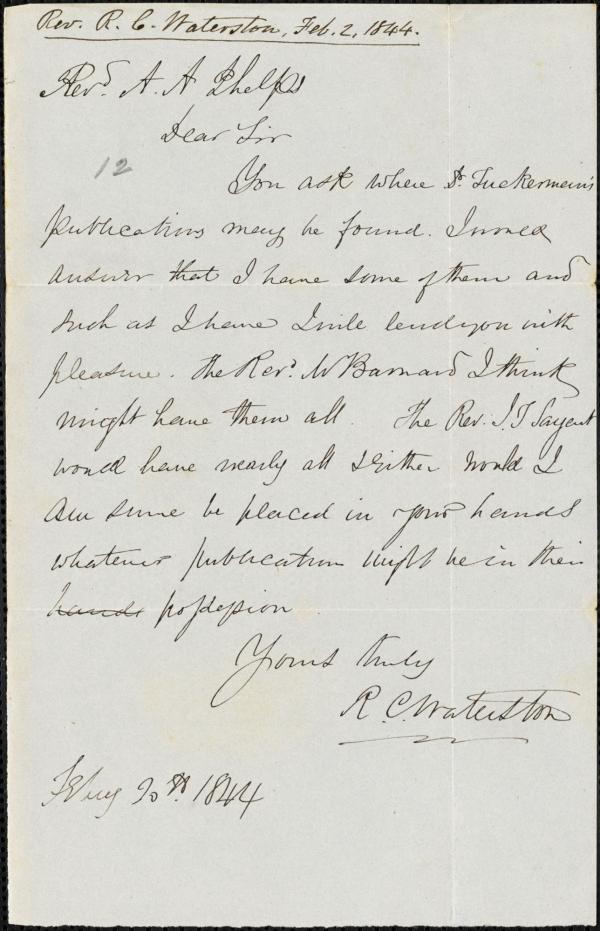 Rev. R. C. Waterston, Feb. 2, 1844.
Revd. A. A Phelps
Dear Sir
12
You ask where Dr. Tuckerman's
publications may be found. I would
answer that I have some of them and
such as I have I will lend you with
pleasure. The Revd. Mr Barnard I think
might have them all. The Rev. J. T Sargent
would have nearly all & Either would I
am sure be placed in your hands
whatever publication might be in their
hands possession
Yours truly
R. C. Waterston
Feby 20th. 1844